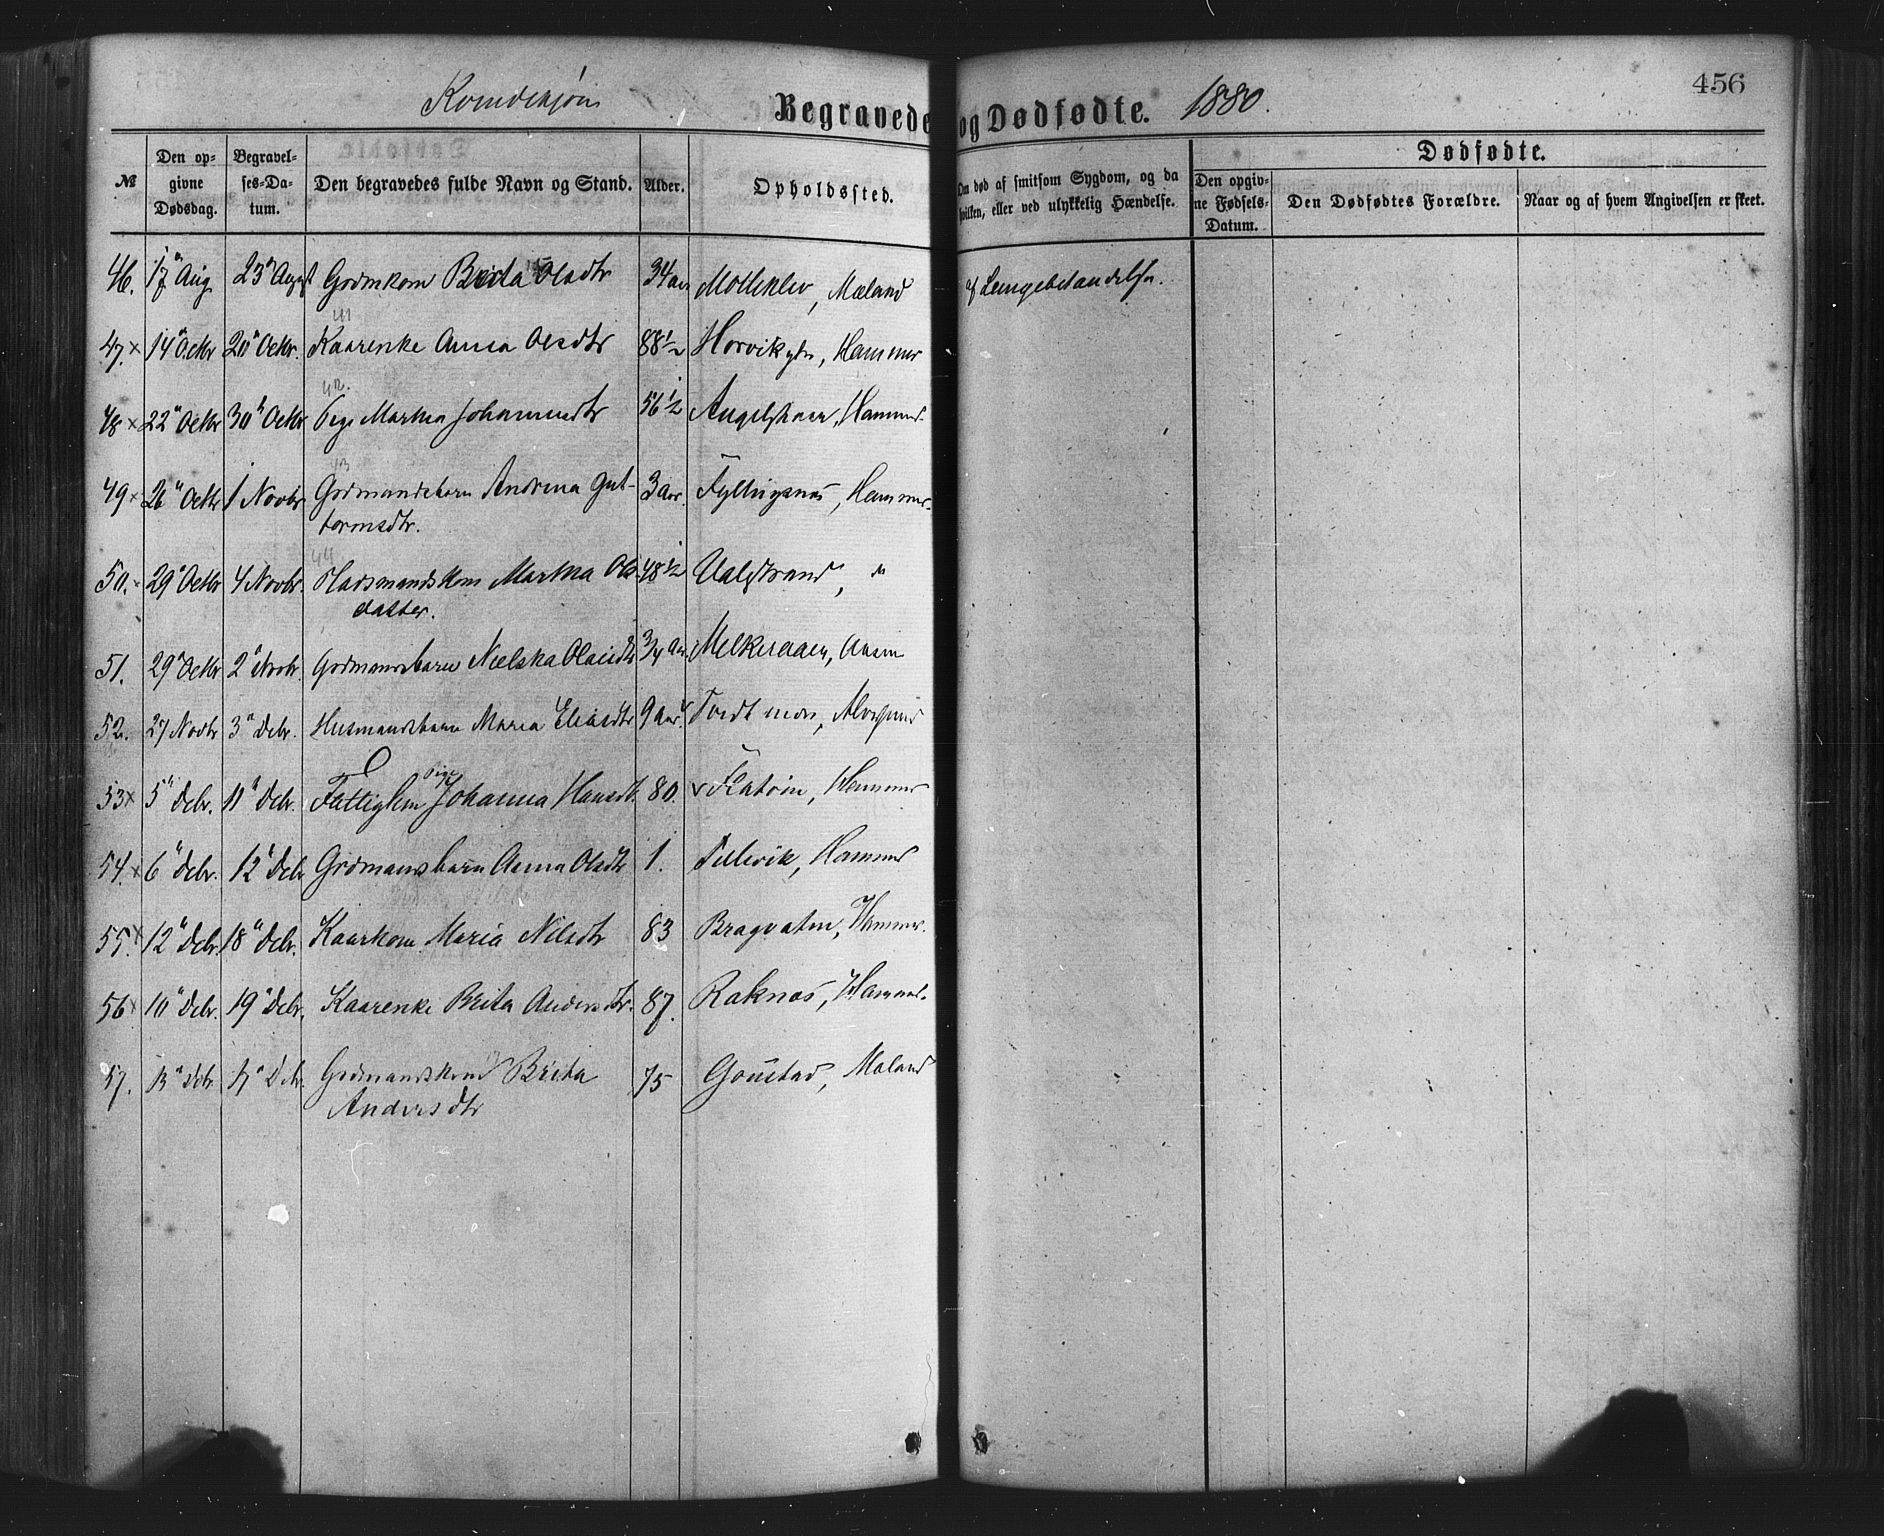 Kvindekjøn
Begravede og Dødfødte. 1880.
456
№
Den op-
givne
Dødsdag.
Begravel-
ses-Da-
tum.
Den begravedes fulde Navn og Stand.
Alder.
Opholdssted.
Om død af smitsom Sygdom, og da
hvilken, eller ved ulykkelig Hændelse.
Dødfødte.
Den opgiv-
ne Fødsels-
Datum.
Den Dødfødtes Forældre.
Naar og af hvem Angivelsen er skeet.
46. 17 Aug 23 August Grdmkone Brita Olsdtr 34 aar Mæland af Lungebetændelse.
41
47. x 14 Octbr 20 Octbr. Kaarenke Anna Olsdtr 88 1/2 Hammer
42.
48 x 22 Octbr 30 Octbr Pige Martha Johannesdtr 56 1/2 Hammer
43
49 x 26 Octbr 1 Novbr Grdmandsbarn Andrina Gut- 3 aar. Fyllingsnes, Hammer
tormsdtr.
44
50. x 29 Octbr 4 Novbr. Pladsmandskone Martha Ols- 48 1/2 Valestrand, "
datter.
51. 29 Octbr 2 Novbr. Grdmandsbarn Nielska Olaisdtr 3/4 Aar.
52. 27 Novbr 3 Debr. Husmandsbarn Maria Eliasdtr 9 aar
53 x 5 Debr. 11 Debr. Fattiglem Pige Johanna Hansdt. 80. Flatøen, Hammer
54. x 6 Debr. 12 Debr Grdmansbarn Anna Olsdtr 1. Tellevik, Hammer
55. x 12 Debr. 18 Debr. Kaarkone Maria Nilsdtr 83 Bragvaten, Hammer.
56 x 10 Debr. 19 Debr. Kaarenke Brita Andersdtr. 87. Raknæs, Hammer.
57. 13 Debr. 17 Debr. Grdmandskone Brita 75 Mæland
Andersdtr